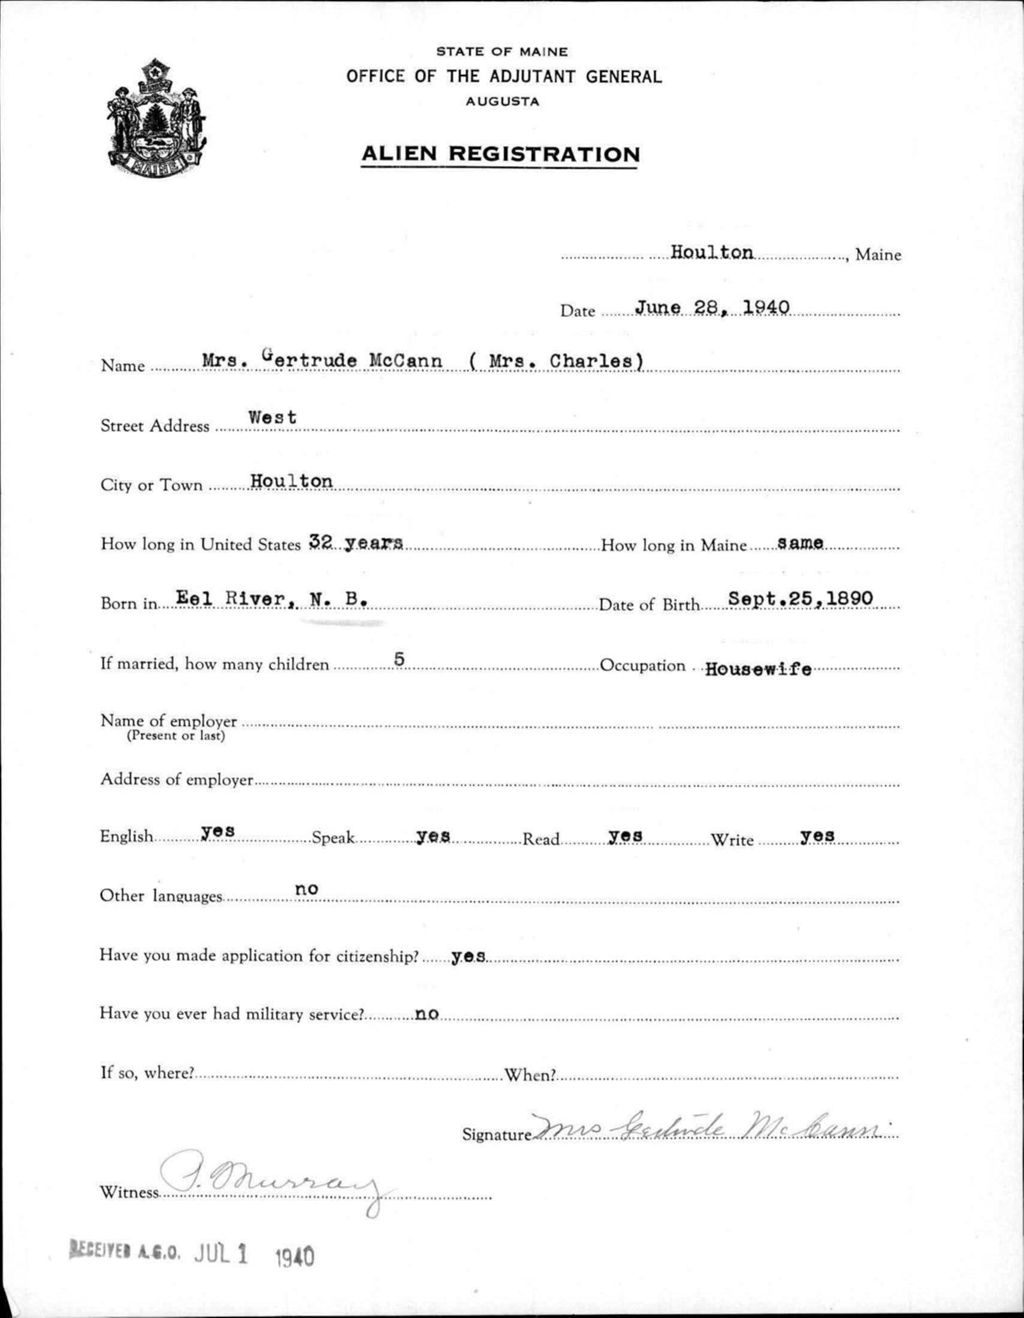 STATE OF MAINE
OFFICE OF THE ADJUTANT GENERAL
AUGUSTA
ALIEN REGISTRATION
MAINE
Houlton, Maine
Date June 28, 1940
Name Mrs. Gertrude McCann ( Mrs. Charles)
Street Address West
City or Town Houlton
How long in United States 32 years How long in Maine same
Born in Eel River, N. B. Date of Birth Sept.25,1890
If married, how many children 5 Occupation Housewife
Name of employer
(Present or last)
Address of employer
English yes Speak yes Read yes Write yes
Other languages no
Have you made application for citizenship? yes
Have you ever had military service? no
If so, where? When?
Signature Mrs Gertrude McCann
Witness P. Murray
RECEIVED A.G.O. JUL 1 1940